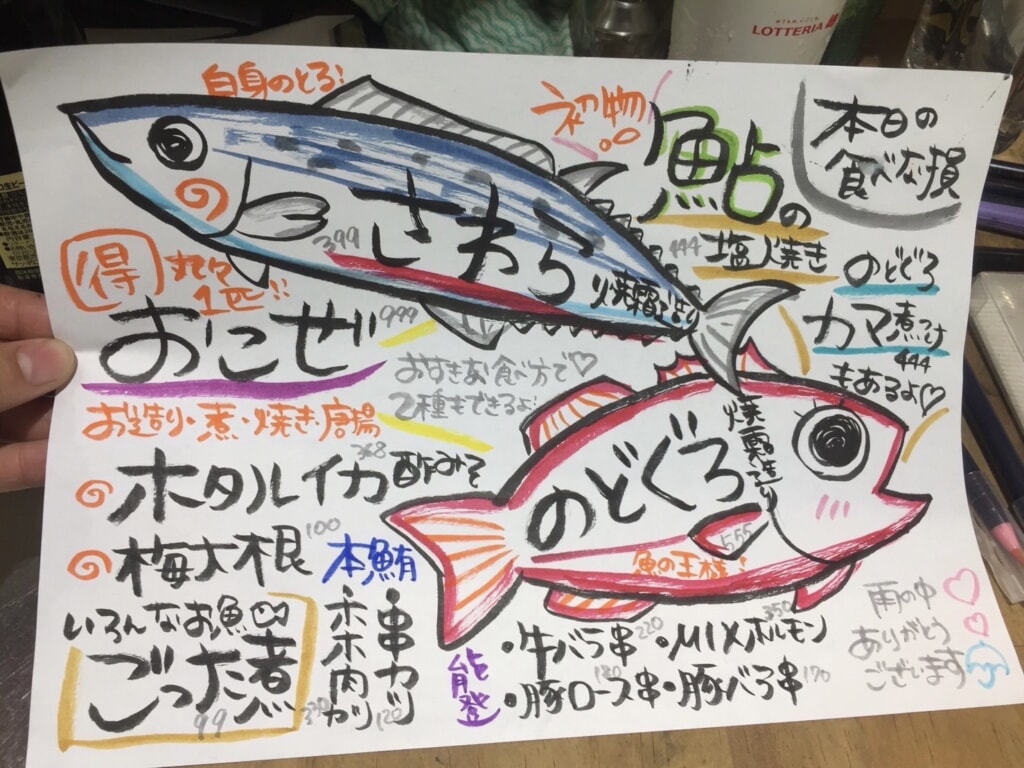 LOTTERIA
本日の
食べな損
白身のとろ!
初物
鮎の
塩焼き
444
さわら
399
焼霜造り
のどぐろ
カマ煮つけ
444
もあるよ♡
得
丸々
1匹!!
おこぜ
999
おすきな食べ方で♡
2種もできるよ!
お造り・煮・焼き・唐揚
ホタルイカ酢みそ
368
梅大根
100
のどぐろ
焼霜造り
555
魚の王様!
いろんなお魚
ごった煮
99
本鮪
ホホ肉カツ
330
串カツ
120
能登
・牛バラ串
220
・MIXホルモン
350
・豚ロース串
180
・豚バラ串
170
雨の中
ありがとう
ございます